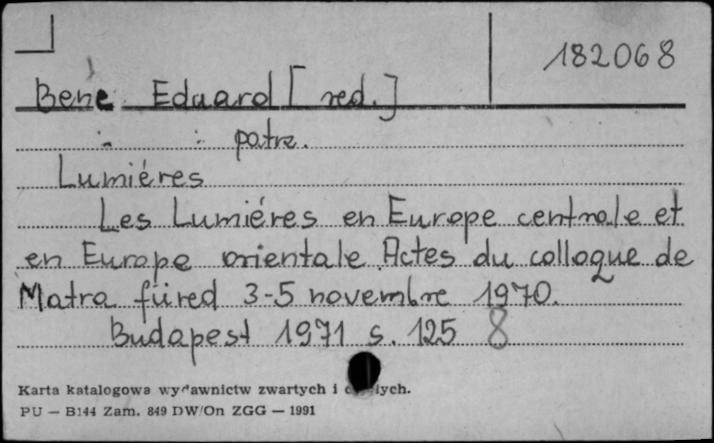 182068
Bene Eduard [red.]
patrz.
Lumiéres
Les Lumiéres en Europe centrale et
en Europe orientale. Actes du colloque de
Matra füred 3-5 novembre 1970.
Budapest 1971 s. 125 8
Karta katalogowa wydawnictw zwartych i ciągłych.
PU — B144 Zam. 849 DW/On ZGG — 1991